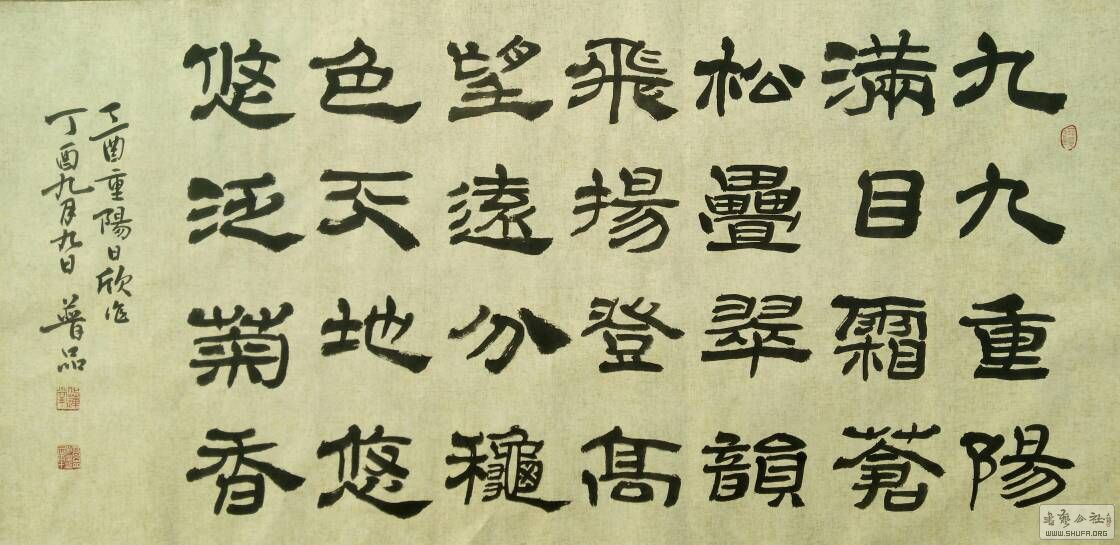 九九重陽
滿目霜蒼
松疊翠韻
飛揚登高
望遠分穐
色天地悠
悠泛菊香
酉重陽日欣作
丁酉九月九日 普品
书艺公社
WWW.SHUFA.ORG